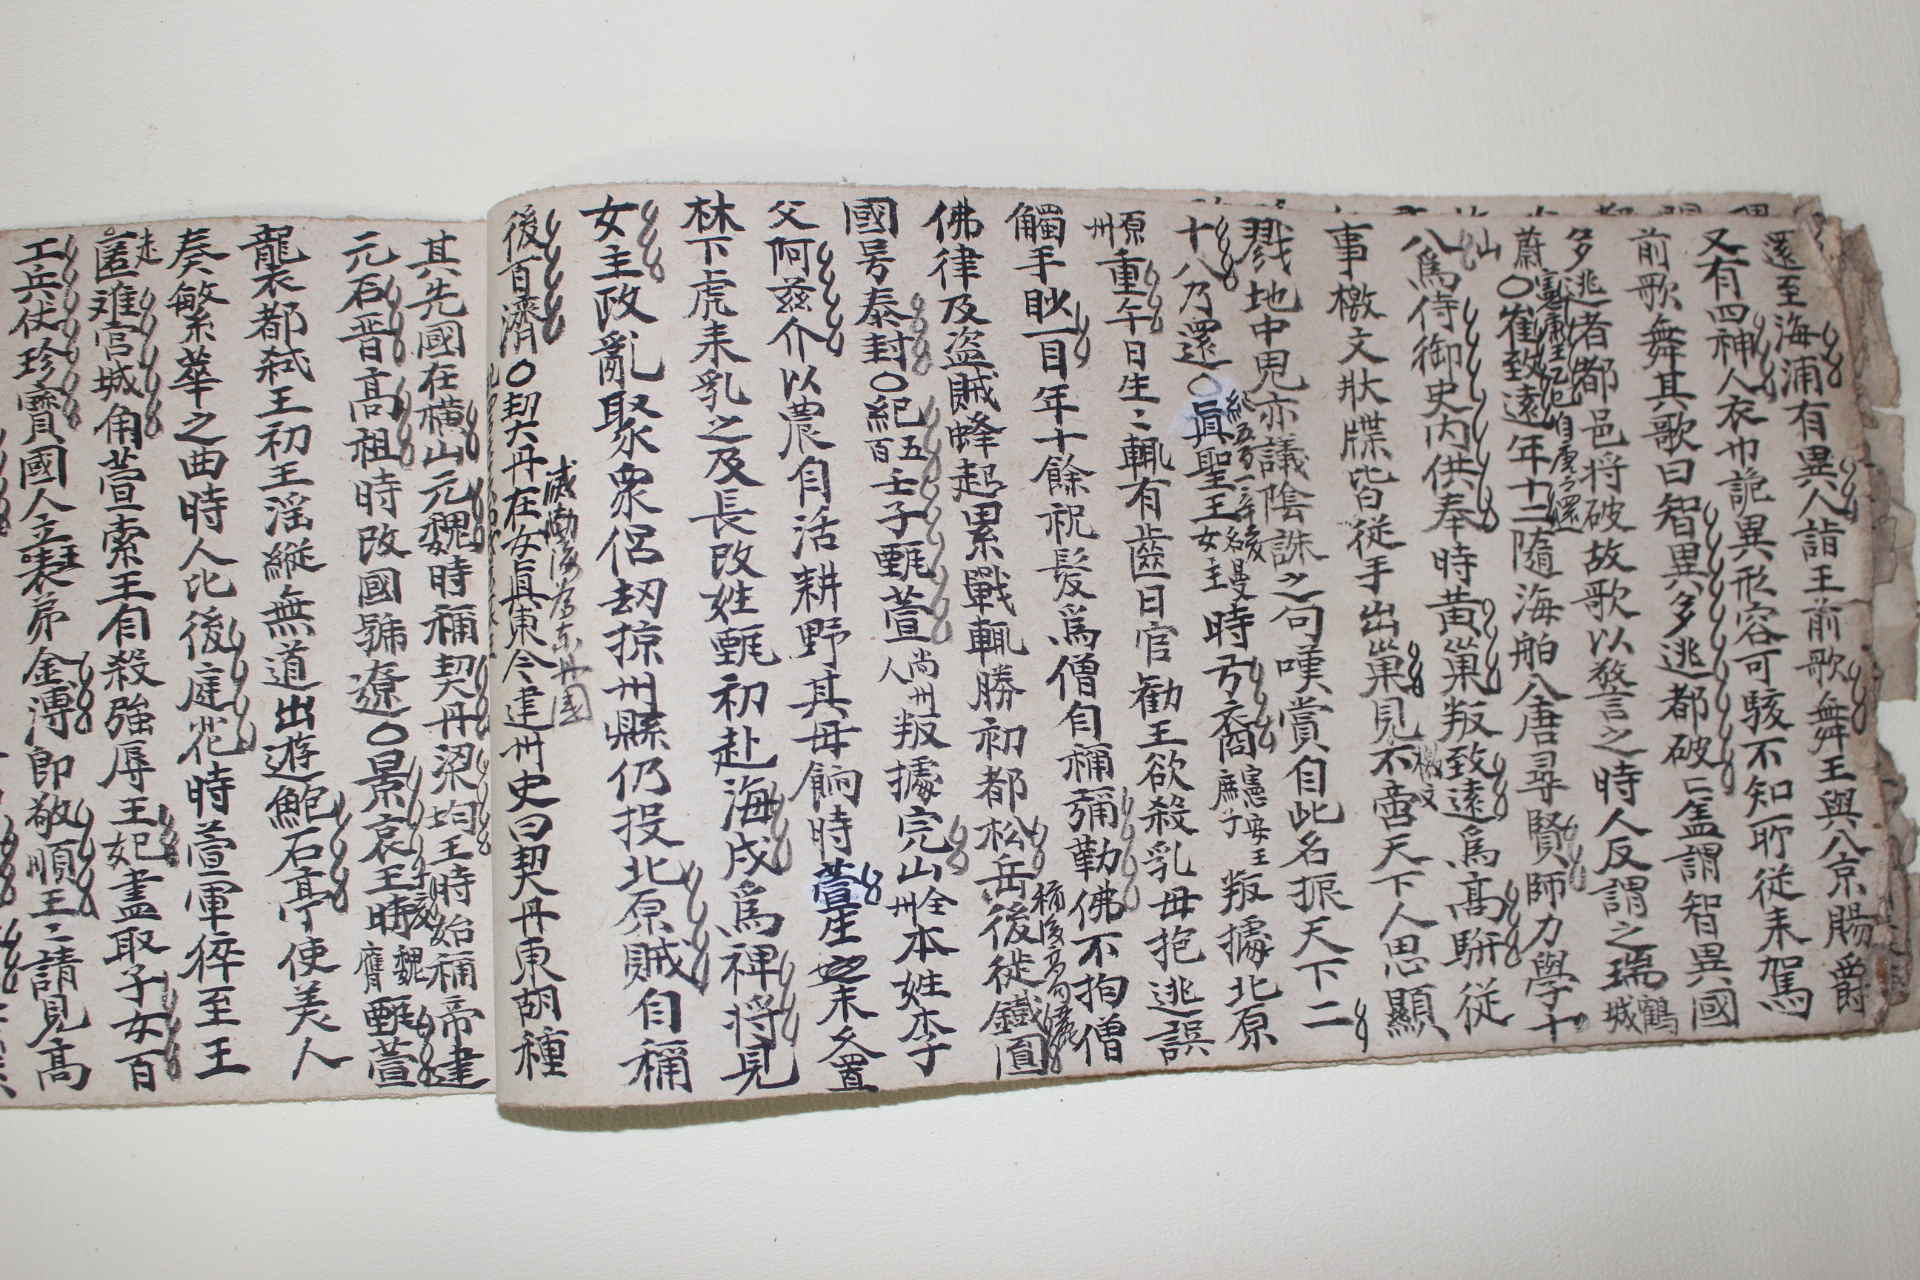 還至海浦有異人詣王前歌舞王與八京賜爵
又有四神人衣巾詭異形容可駭不知所從來駕
前歌舞其歌曰智異多逃都破亡盖謂智異國
多逃者都邑将破故歌以警言之時人反謂之瑞鶴城
蔚山〇崔致遠年十二隨海舶入唐尋賢師力學十
八爲侍御史内供奉時黄巢叛致遠爲高駢從
事檄文狀牒皆從手出巢見不啻天下人思顯
戮地中鬼亦議陰誅之句嘆賞自此名振天下二
十八乃還〇眞聖王女主名曼時弓裔憲安王庶子叛據北原
原州重午日生〻輒有齒日官勸王欲殺乳母抱逃誤
觸手眇一目年十餘祝髮爲僧自稱彌勒佛不拘僧
佛律及盗賊蜂起累戰輒勝初都松岳後徙鐵圓
國号泰封〇紀五百壬子甄萱尚州人叛據完山全州本姓李
父阿慈介以農自活耕野其母餉時萱生之未久置
林下虎来乳之及長改姓甄初赴海戍爲裨将見
女主政亂聚衆侶刼掠州縣仍投北原賊自稱
後百濟〇契丹在女眞東今建州史曰契丹東胡種
滅渤海爲東丹國
其先國在橫山元魏時稱契丹梁均王時始稱帝建
元石晋高祖時改國號遼〇景哀王時甄萱
龍衣都弑王初王淫縱無道出遊鮑石亭使美人
奏繁華之曲時人比後庭花時萱軍猝至王
走匿难宫城角萱索王自殺強辱王妃盡取子女百
工兵伏珍寶國人立王表弟金溥即敬順王〻請見高